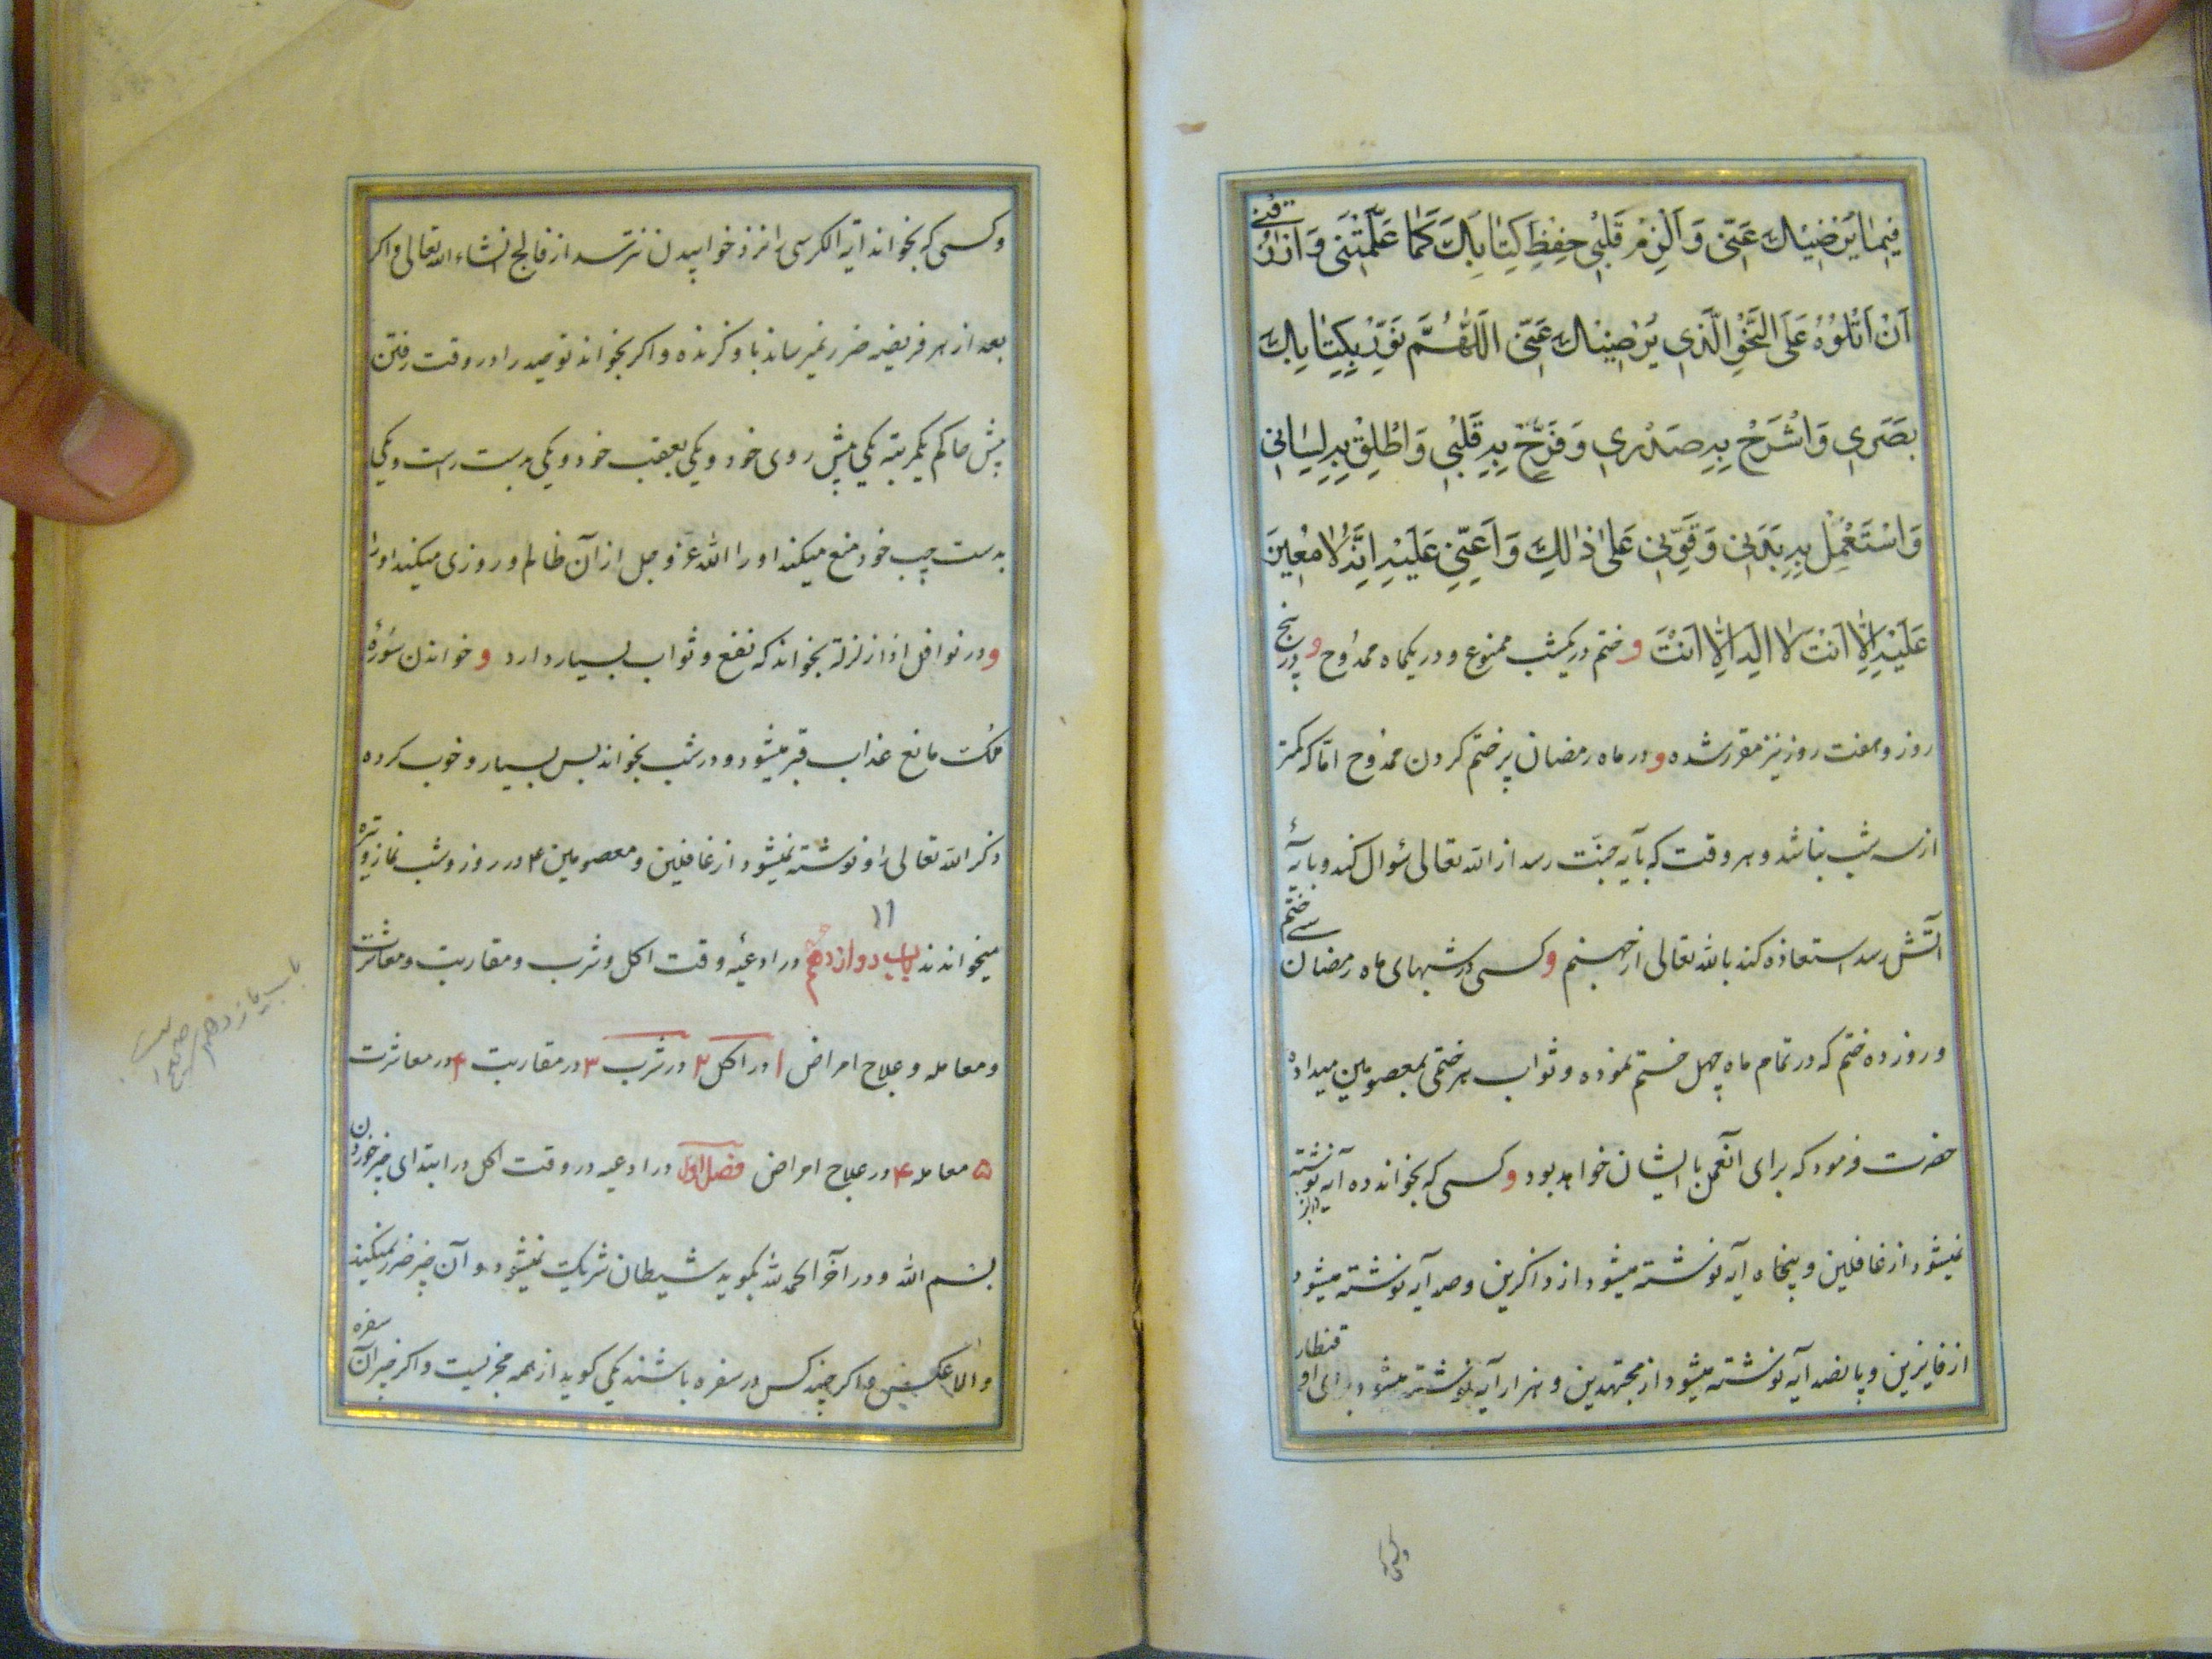 فِيمَا يُرْضِيكَ عَنِّي وَأَلْزِمْ قَلْبِي حِفْظَ كِتَابِكَ كَمَا عَلَّمْتَنِي وَارْزُقْنِي
أَنْ أَتْلُوَهُ عَلَى النَّحْوِ الَّذِي يُرْضِيكَ عَنِّي اَللّٰهُمَّ نَوِّرْ بِكِتَابِكَ
بَصَرِي وَاشْرَحْ بِهِ صَدْرِي وَفَرِّحْ بِهِ قَلْبِي وَأَطْلِقْ بِهِ لِسَانِي
وَاسْتَعْمِلْ بِهِ بَدَنِي وَقَوِّنِي عَلَى ذَالِكَ وَأَعِنِّي عَلَيْهِ إِنَّهُ لَا مُعِينَ
عَلَيْهِ إِلَّا أَنْتَ لَا إِلَهَ إِلَّا أَنْتَ و ختم در یکشب ممنوع و در یکماه ممدوح و در پنج
روز و هفت روز نیز مقرر شده و در ماه رمضان پر ختم کردن ممدوح امّا که کمتر
از سه شب نباشد و هر وقت که بآیه جنّت رسد از الله تعالی سٔوال کند و بآیهٔ
آتش رسد استعاذه کند بالله تعالی از جهنم و کسی در شبهای ماه رمضان سی ختم
و روز ده ختم که در تمام ماه چهل ختم نموده و ثواب هر ختمی بمعصومین میداده
حضرت فرمود که برای آنعمل با ایشان خواهد بود و کسی که بخواند ده آیه نوشته
نمیشود از غافلین و پنجاه آیه نوشته میشود از ذاکرین و صد آیه نوشته میشود
از فایزین و پانصد آیه نوشته میشود از مجتهدین و هزار آیه نوشته میشود برای او قنطار
و کسی که بخواند آیة الکرسی را نزد خوابیدن نترسد از فالج انشاء الله تعالی و اکر
بعد از هر فریضه ضرر نمیرساند باو کزنده و اکر بخواند توحید را در وقت رفتن
پیش حاکم یکمرتبه یکی پیش روی خود و یکی بعقب خود و یکی بدست راست و یکی
بدست چپ خود منع میکند او را الله عز و جل از آن ظالم و روزی میکند او را
و در نوافل اذا زلزلة بخواند که نفع و ثواب بسیار دارد و خواندن سورهٔ
ملک مانع عذاب قبر میشود و در شب بخواند پس بسیار و خوب کرده
ذکر الله تعالی را و نوشته نمیشود از غافلین و معصومین ع در روز و شب نماز وتیره
۱۱
میخواندند باب دوازدهم در ادعیهٔ وقت اکل و شرب و مقاربت و معاشرت
و معامله و علاج امراض ۱ در اکل ۲ در شرب ۳ در مقاربت ۴ در معاشرت
۵ معامله ۶ در علاج امراض فصل اول در ادعیه در وقت اکل در ابتدای خوردن
بسم الله و در آخر الحمد لله بکوید شیطان شریک نمیشود و آن چیز ضرر نمیکند
و الا عکس و اکر چند کس در سفره باشند یکی کوید از همه مجزیست و اکر چیز آن سفره
باب یازدهم صحیح است